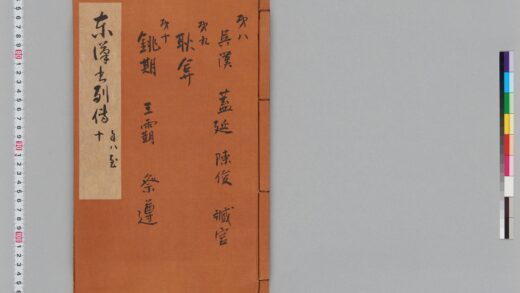 弟八
吳漢 蓋延 陳俊 臧宮
弟九
耿弇
弟十
銚期 王霸 祭遵
東漢書列傳十